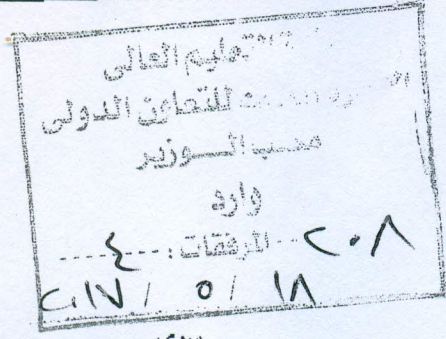 التعليم العالى
للتعاون الدولى
الـــوزير
وارد
٢٠٨ المرفقات : ٤
١٨ / ٥ / ٢٠١٧